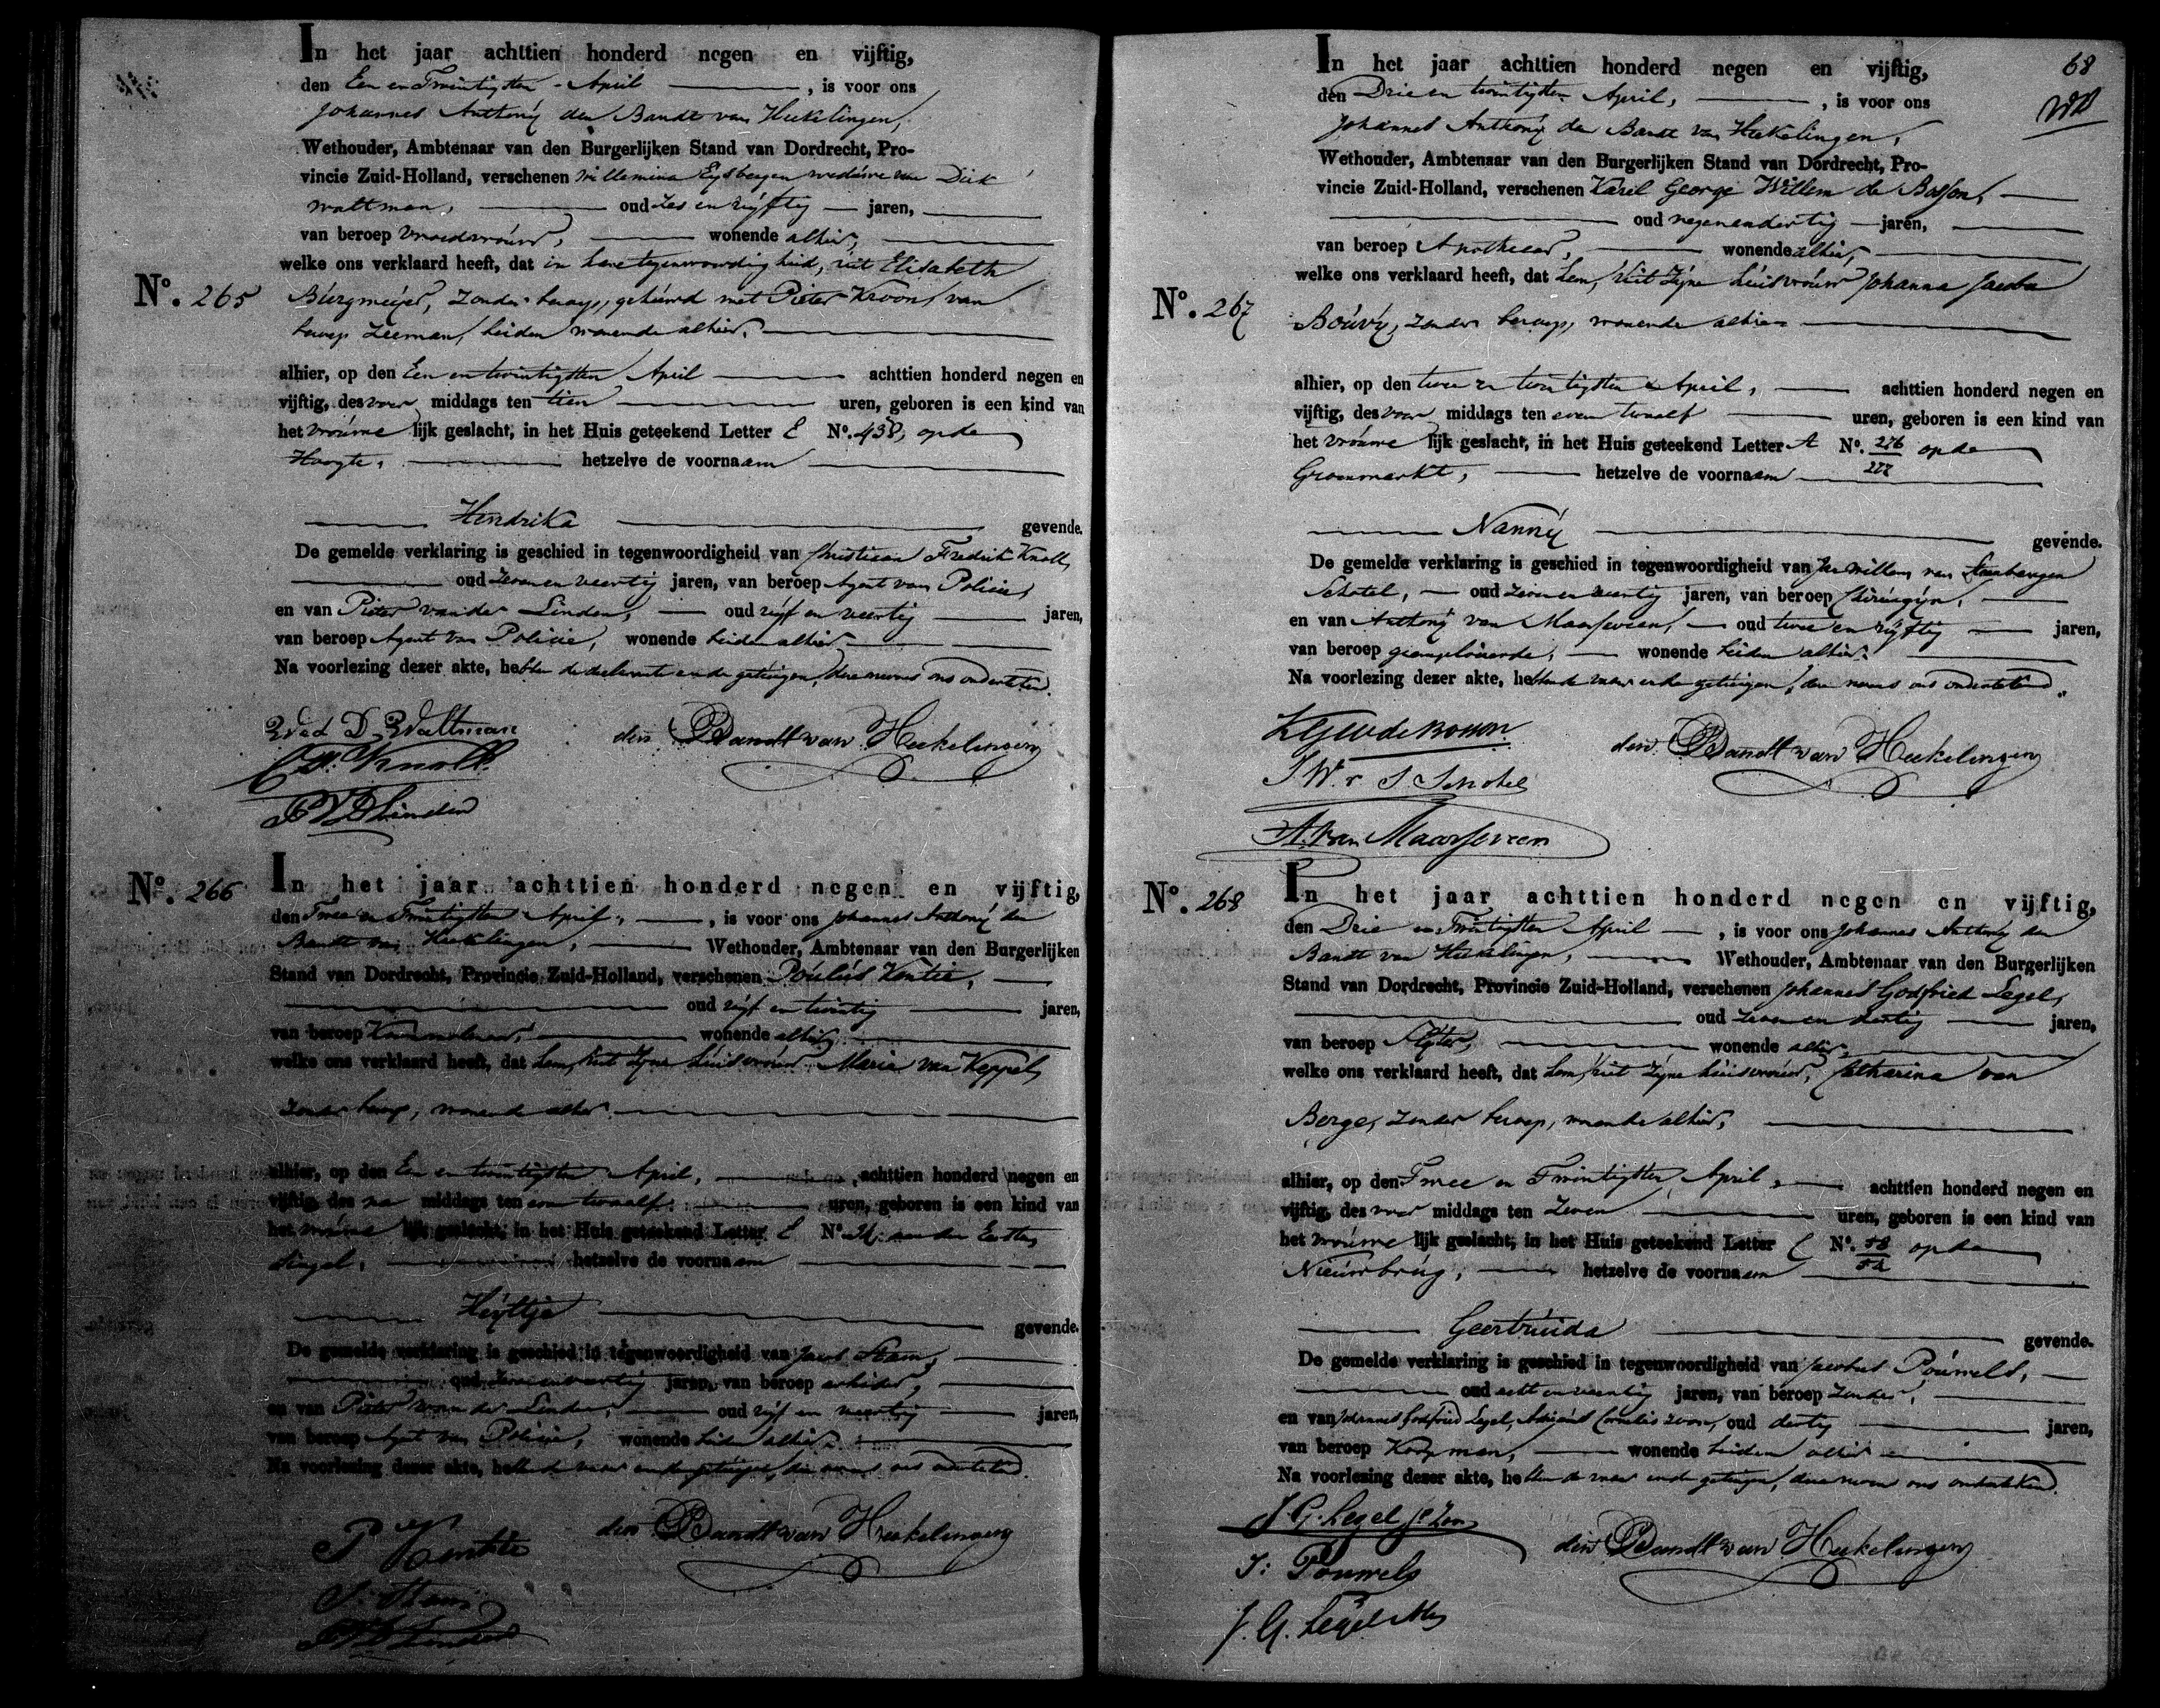 In het jaar achttien honderd negen en vijftig,
den Een en Twintigsten April, is voor ons
Johannes Anthonij den Bandt van Heekelingen,
Wethouder, Ambtenaar van den Burgerlijken Stand van Dordrecht, Pro-
vincie Zuid-Holland, verschenen Willemina Eysbergen weduwe van Dirk
Waltman, oud zes en vijftig jaren,
van beroep vroedvrouw, wonende alhier,
welke ons verklaard heeft, dat in hare tegenwoordigheid, uit Elisabeth
No. 265 Burgmeijer, zonder beroep, gehuwd met Pieter Kroon, van
beroep Zeeman, beiden wonende alhier,
alhier, op den Een en twintigsten April achttien honderd negen en
vijftig, des voor middags ten tien uren, geboren is een kind van
het vrouwe lijk geslacht, in het Huis geteekend Letter E No. 438, op de
Hoogte, hetzelve de voornaam
Hendrika gevende.
De gemelde verklaring is geschied in tegenwoordigheid van Christiaan Fredrik Knoll,
oud zeven en veertig jaren, van beroep Agent van Policie,
en van Pieter van der Linden, oud vijf en veertig jaren,
van beroep Agent van Policie, wonende beiden alhier
Na voorlezing dezer akte, hebben de declarante en de getuigen, dezen nevens ons onderteekend.
Wed D. Waltman den Bandt van Heekelingen
C F. Knoll
P V D Linden
No. 266 In het jaar achttien honderd negen en vijftig,
den Twee en Twintigsten April, is voor ons Johannes Anthonij den
Bandt van Heekelingen, Wethouder, Ambtenaar van den Burgerlijken
Stand van Dordrecht, Provincie Zuid-Holland, verschenen Poulus Kentie,
oud vijf en twintig jaren,
van beroep wonende alhier,
welke ons verklaard heeft, dat hem, uit zijne huisvrouw Maria van Keppel,
zonder beroep, wonende alhier
alhier, op den Een en twintigsten April, achttien honderd negen en
vijftig, des na middags ten twaalf uren, geboren is een kind van
het vrouwe lijk geslacht, in het Huis geteekend Letter E No. aan den
Singel, hetzelve de voornaam
gevende.
De gemelde verklaring is geschied in tegenwoordigheid van Jacob Stam,
oud jaren, van beroep arbeider,
en van Pieter van der Linden, oud vijf en veertig jaren,
van beroep Agent van Policie, wonende beiden alhier
Na voorlezing dezer akte, hebben de vader en de getuigen, dezen nevens ons onderteekend.
P Kentie den Bandt van Heekelingen
J. Stam
P V D Linden
68
In het jaar achttien honderd negen en vijftig,
den Drie en twintigsten April, is voor ons
Johannes Anthonij den Bandt van Heekelingen,
Wethouder, Ambtenaar van den Burgerlijken Stand van Dordrecht, Pro-
vincie Zuid-Holland, verschenen Karel George Willem de Bosson,
oud negenendertig jaren,
van beroep Apotheker, wonende alhier,
welke ons verklaard heeft, dat hem, uit zijne huisvrouw Johanna Jacoba
No. 267 Bouvy, zonder beroep, wonende alhier
alhier, op den twee en twintigsten April, achttien honderd negen en
vijftig, des voor middags ten twaalf uren, geboren is een kind van
het vrouwe lijk geslacht, in het Huis geteekend Letter A No. 276/277 op de
Groenmarkt, hetzelve de voornaam
Nannij gevende.
De gemelde verklaring is geschied in tegenwoordigheid van Jan Willem van
Schotel, oud zeven en veertig jaren, van beroep Chirurgijn,
en van Anthonij van Maarseveen, oud twee en vijftig jaren,
van beroep geemploieerde, wonende beiden alhier.
Na voorlezing dezer akte, hebben de vader en de getuigen, dezen nevens ons onderteekend.
K G W de Bosson den Bandt van Heekelingen
J W. v. S Schotel
A. van Maarseveen
No. 268 In het jaar achttien honderd negen en vijftig,
den Drie en Twintigsten April, is voor ons Johannes Anthonij den
Bandt van Heekelingen, Wethouder, Ambtenaar van den Burgerlijken
Stand van Dordrecht, Provincie Zuid-Holland, verschenen Johannes Godfried Legel,
oud zeven en dertig jaren,
van beroep wonende alhier,
welke ons verklaard heeft, dat hem, uit zijne huisvrouw, Catharina van
Berge, zonder beroep, wonende alhier,
alhier, op den Twee en Twintigsten April, achttien honderd negen en
vijftig, des voor middags ten zeven uren, geboren is een kind van
het vrouwe lijk geslacht, in het Huis geteekend Letter C No. op de
Nieuwbrug, hetzelve de voornaam
Geertruida gevende.
De gemelde verklaring is geschied in tegenwoordigheid van Jacobus Pouwels,
oud acht en veertig jaren, van beroep zonder,
en van Johannes Godfried Legel, Adrianus Cornelis zoon, oud dertig jaren,
van beroep Koopman, wonende beiden alhier
Na voorlezing dezer akte, hebben de vader en de getuigen, dezen nevens ons onderteekend.
J. G. Legel Jc Zoon den Bandt van Heekelingen
J: Pouwels
J. G. Legel